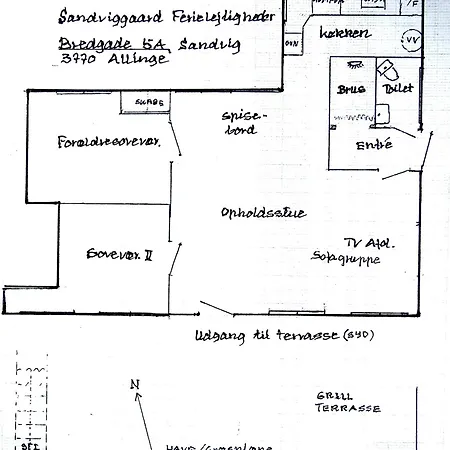 Sandviggaard Ferielejligheder
Bredgade 5A, Sandvig
3770 Allinge
køkken
OVN
VV
/F
SKABE
Brus
Toilet
Spise-
bord
Forældresovevær.
Entré
Opholdsstue
TV Afd.
Sofagruppe
Sovevær. II
Udgang til terrasse (SYD)
N
GRILL
TERRASSE